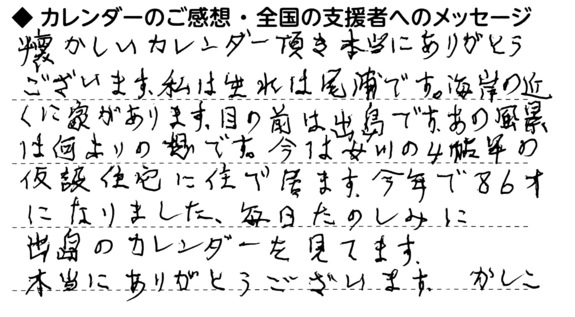 ◆ カレンダーのご感想・全国の支援者へのメッセージ
懐かしいカレンダー頂き本当にありがとう
ございます。私は生れは尾浦です。海岸の近
くに家があります。目の前は出島です。あの風景
は何よりの想です。今は女川の4
仮設住宅に住で居ます。今年で86才
になりました、毎日たのしみに
出島のカレンダーを見てます。
本当にありがとうございます。 かしこ